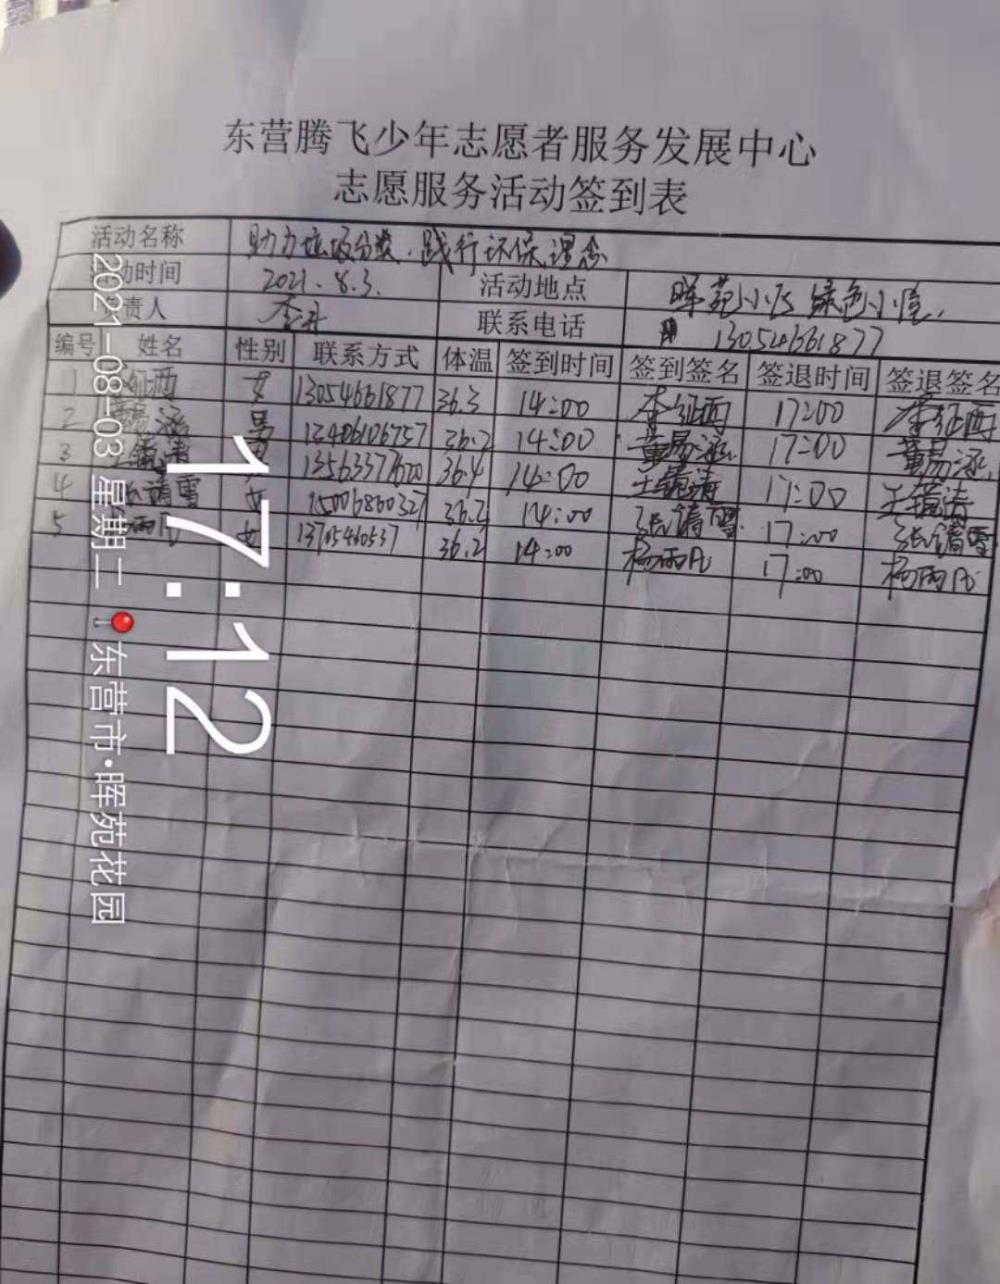 东营腾飞少年志愿者服务发展中心
志愿服务活动签到表
活动名称 助力垃圾分类，践行环保理念
动时间 2021.8.3. 活动地点 晖苑小区 绿色小院
责人 联系电话 13054661877
编号 姓名 性别 联系方式 体温 签到时间 签到签名 签退时间 签退签名
1 女 13054661877 36.3 14:00 李征西 17:00 李征西
2 男 36.2 14:00 董易涵 17:00 董易涵
3 男 36.4 14:00 17:00
4 女 15006860327 36.2 14:00 张清雪 17:00 张清雪
5 女 13705460537 36.2 14:00 17:00
2021-08-03 星期二 东营市·晖苑花园
17:12